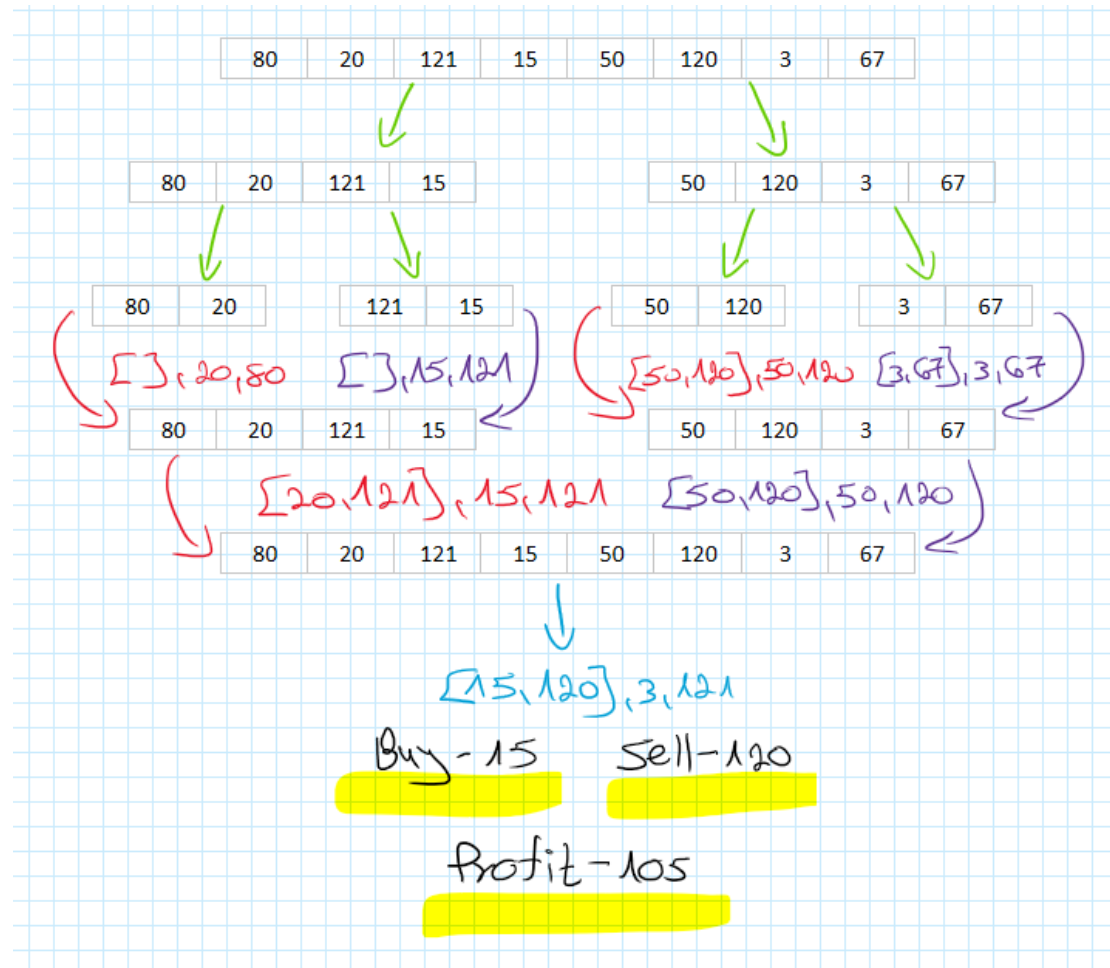 80 20 121 15 50 120 3 67
80 20 121 15 50 120 3 67
80 20 121 15 50 120 3 67
[],20,80 [],15,121 [50,120],50,120 [3,67],3,67
80 20 121 15 50 120 3 67
[20,121],15,121 [50,120],50,120
80 20 121 15 50 120 3 67
[15,120],3,121
Buy-15 Sell-120
Profit-105